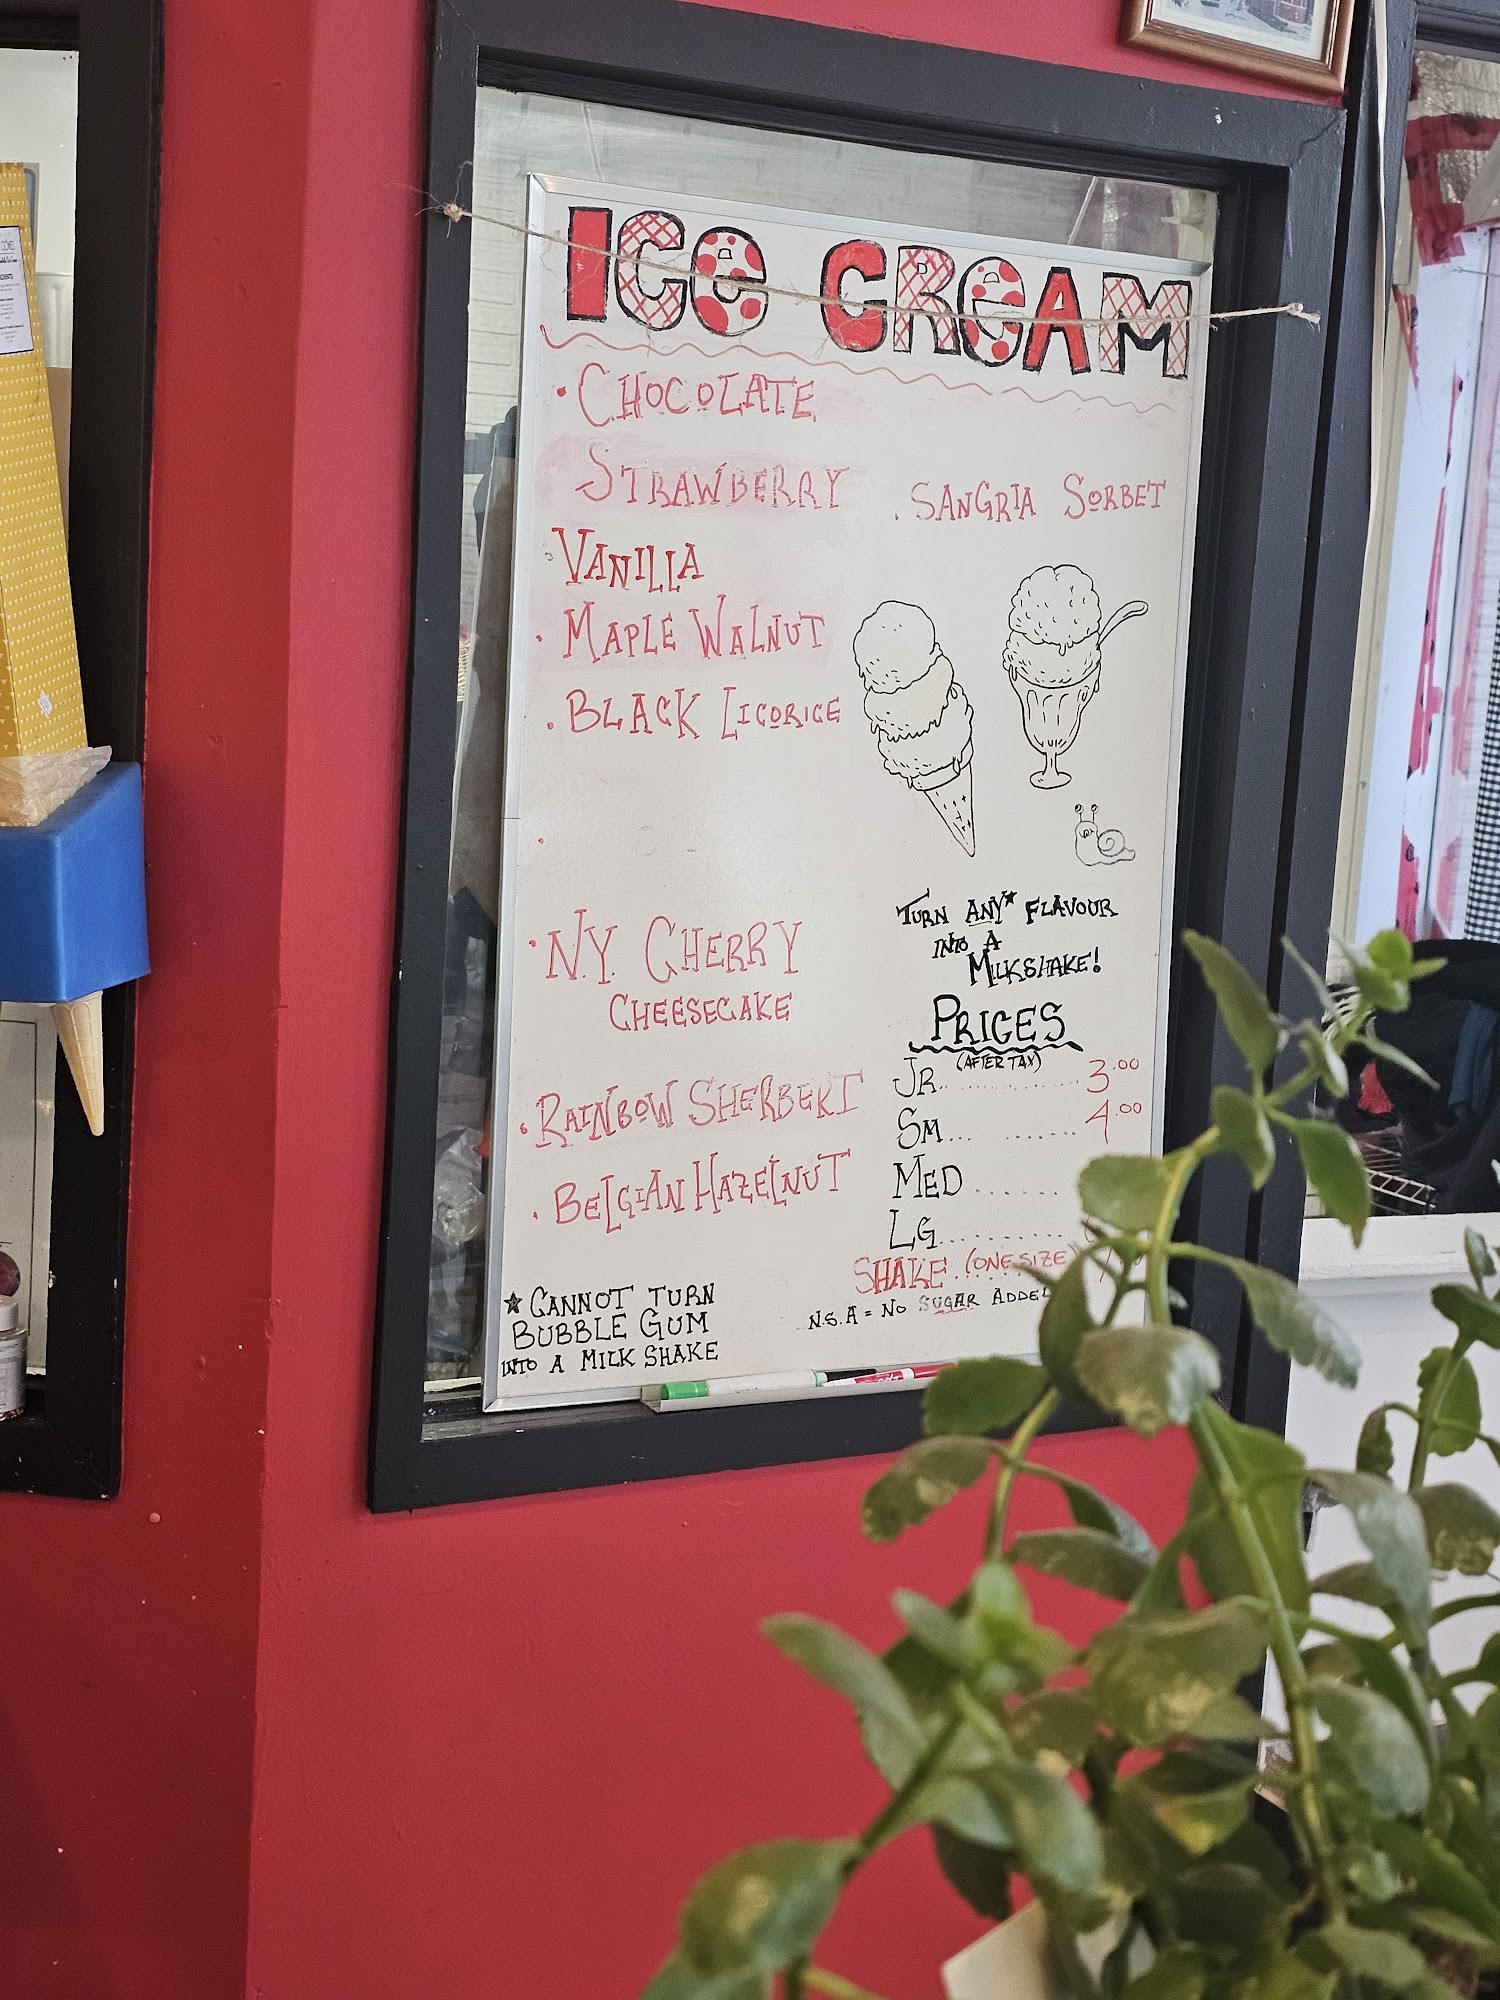 ICE CREAM
• CHOCOLATE
STRAWBERRY
VANILLA
• MAPLE WALNUT
• BLACK LICORICE
• N.Y. CHERRY
CHEESECAKE
• RAINBOW SHERBERT
• BELGIAN HAZELNUT
★ CANNOT TURN
BUBBLE GUM
INTO A MILK SHAKE
• SANGRIA SORBET
TURN ANY★ FLAVOUR
INTO A
MILKSHAKE!
PRICES
(AFTER TAX)
JR............ 3.00
SM... ....... 4.00
MED ......
LG..........
SHAKE (ONE SIZE)
N.S.A = NO SUGAR ADDED